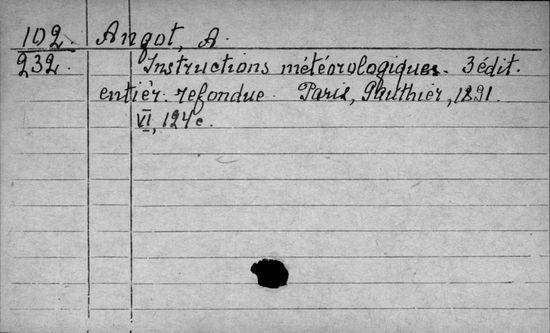 102. Angot, A.
232. Instructions météorologiques. 3 édit.
entièr. refondue. Paris, Gauthier, 1891.
VI, 124 c.